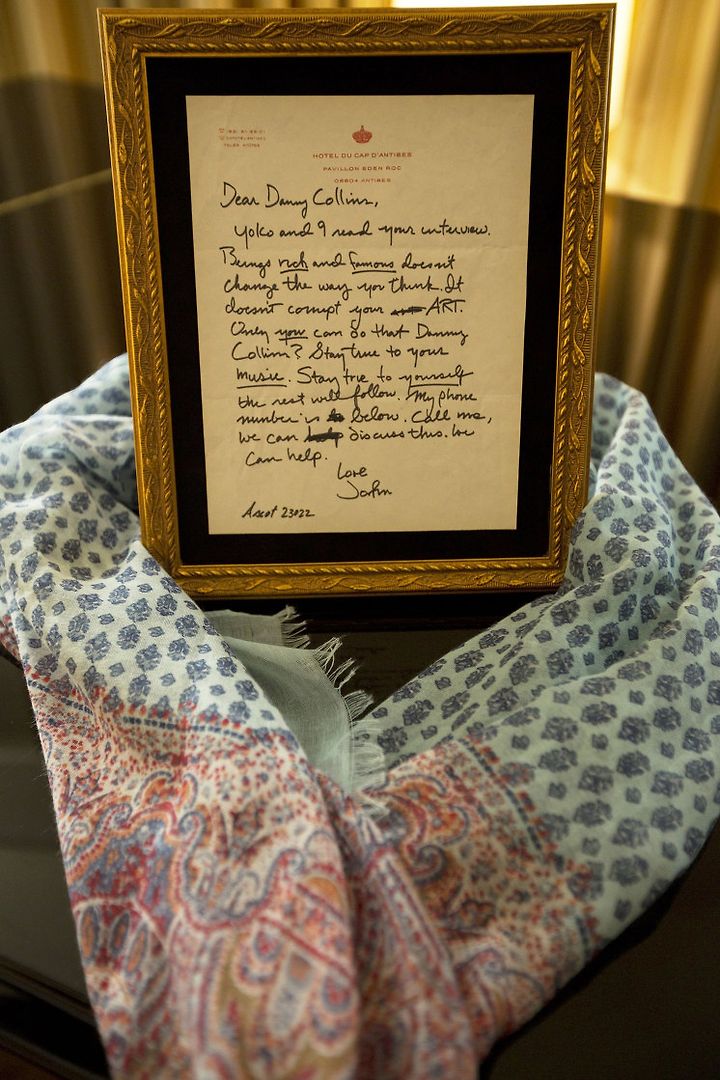 HOTEL DU CAP D'ANTIBES
PAVILLON EDEN ROC
06604 ANTIBES
Dear Danny Collins,
Yoko and I read your interview.
Beings rich and famous doesn't
change the way you think. It
doesn't corrupt your ART.
Only you can do that Danny
Collins? Stay true to your
music. Stay true to yourself
the rest will follow. My phone
number is below. Call me,
we can discuss this. We
can help.
Love
John
Ascot 23022